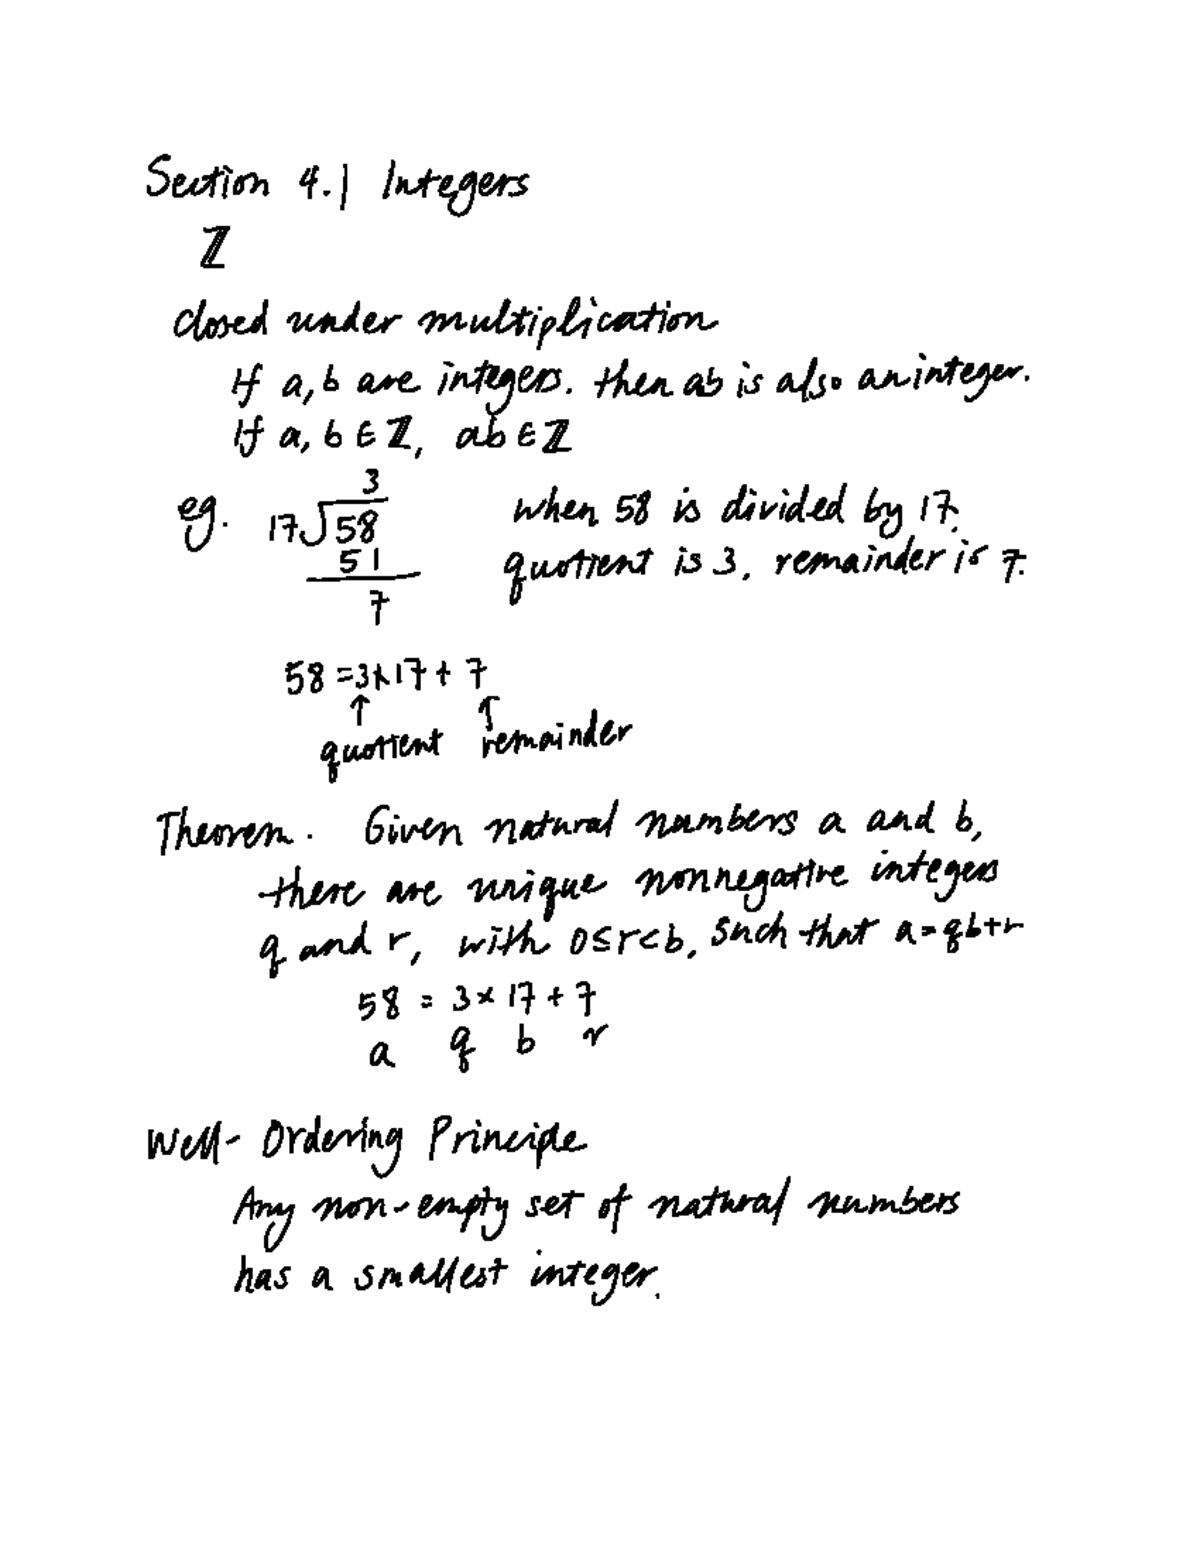 Section 4.1 Integers
ℤ
closed under multiplication
If a, b are integers. then ab is also an integer.
If a, b ∈ ℤ, ab ∈ ℤ
3
eg. 17√58 when 58 is divided by 17.
51 quotient is 3, remainder is 7.
7
58 = 3×17 + 7
↑ ↑
quotient remainder
Theorem. Given natural numbers a and b,
there are unique nonnegative integers
q and r, with 0≤r<b, such that a=qb+r
58 = 3 × 17 + 7
a q b r
Well-Ordering Principle
Any non-empty set of natural numbers
has a smallest integer.